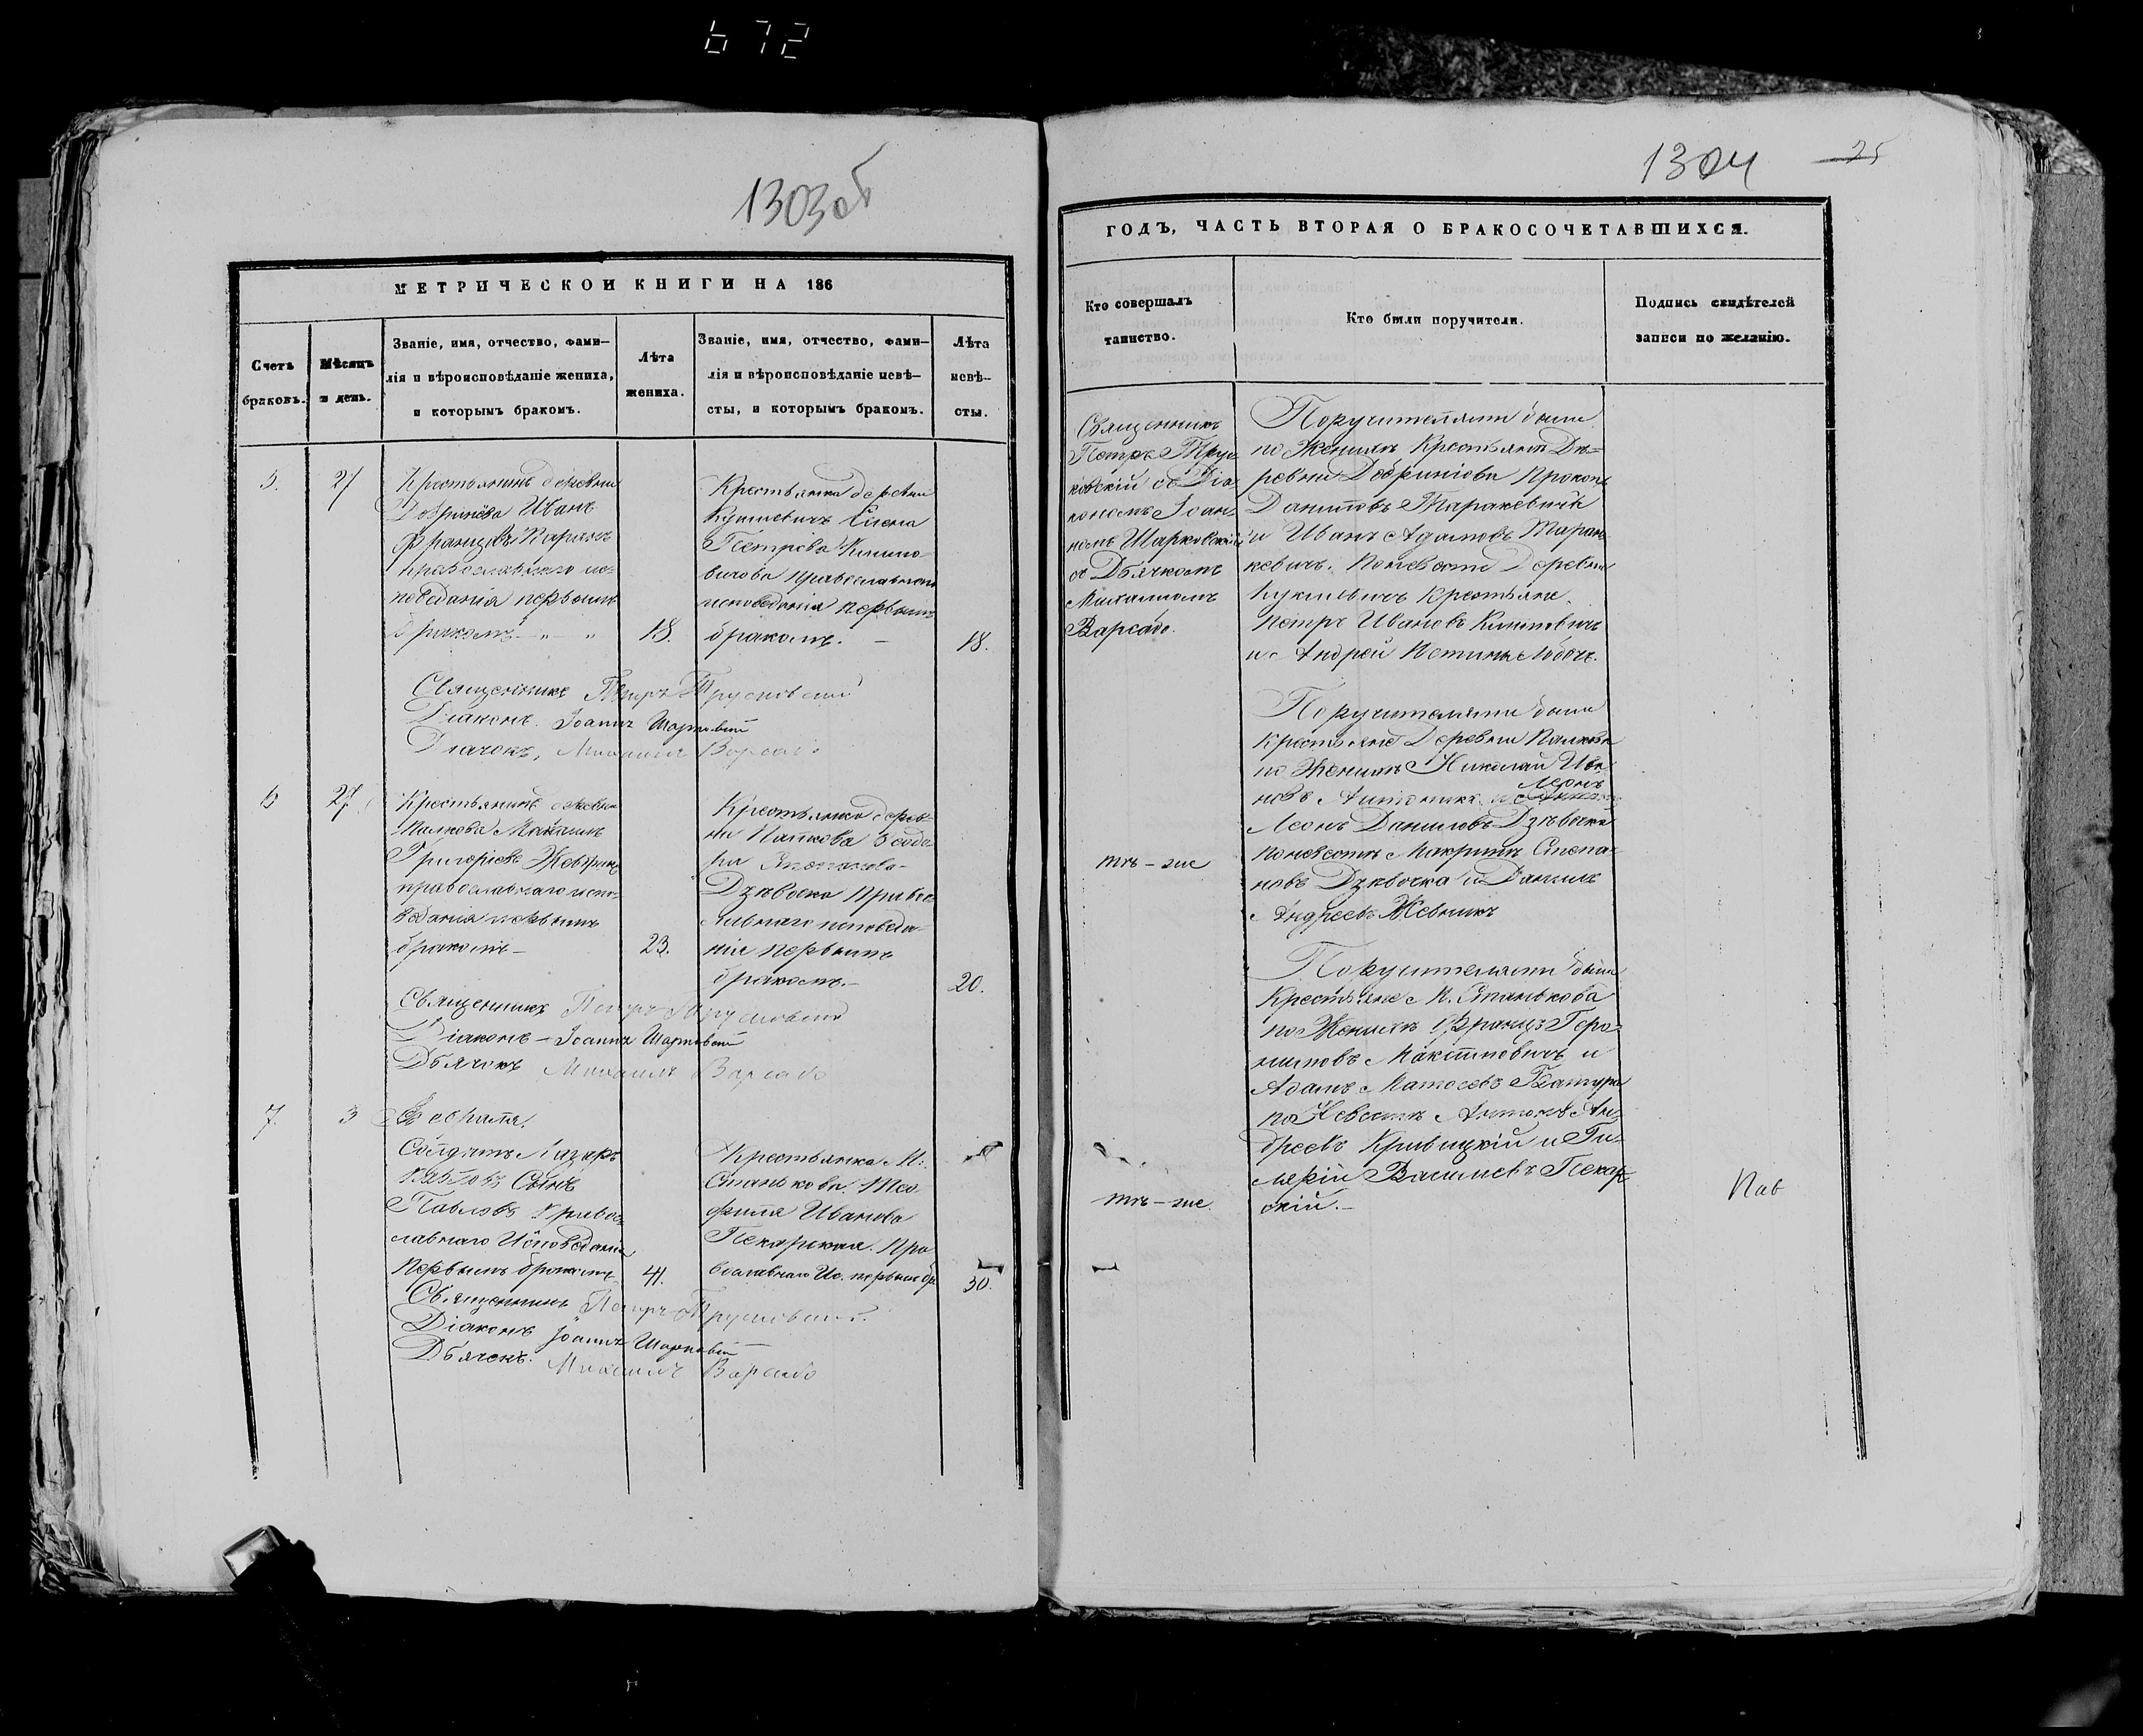 672
1303об
МЕТРИЧЕСКОЙ КНИГИ НА 186
Счетъ браковъ.
Мѣсяцъ и день.
Званіе, имя, отчество, фами-
лія и вѣроисповѣданіе жениха,
и которымъ бракомъ.
Лѣта жениха.
Званіе, имя, отчество, фами-
лія и вѣроисповѣданіе невѣ-
сты, и которымъ бракомъ.
Лѣта невѣ-
сты.
5.
27
Крестьянинъ деревни
Добринёва Иванъ
Францовъ
православнаго ис-
поведанія первымъ
бракомъ
18.
Крестьянка деревни
Кукшевичъ Елена
Петрова Климо-
вичова православнаго
исповеданія первымъ
бракомъ. –
18.
Священникъ Петръ
Діаконъ Іоаннъ
Діачокъ, Михаилъ Варсабо
6
27
Крестьянинъ деревни
Полкова
Григоріевъ
православнаго испо-
веданія первымъ
бракомъ –
23.
Крестьянка дерев-
ни
Дзѣвочка Правос-
лавнаго исповеда-
нія первымъ
бракомъ. –
20.
Священникъ Петръ
Діаконъ – Іоаннъ
Дьячокъ Михаилъ Варсабо
7.
3
Февраля.
Солдатъ Лазарь
Павловъ Сынъ
Павловъ Правос-
лавнаго Исповеданія
Первымъ бракомъ
41.
Крестьянка М.
Станькова Тео-
филя Иванова
Пекарская. Пра-
вославнаго Ис. первым бр.
30.
Священникъ Петръ
Діаконъ Іоаннъ
Дьячекъ. Михаилъ Варсабо
1304
25
ГОДЪ, ЧАСТЬ ВТОРАЯ О БРАКОСОЧЕТАВШИХСЯ.
Кто совершалъ
таинство.
Кто были поручители.
Подпись свидѣтелей
записи по желанію.
Священникъ
Петръ Трус-
ковскій съ Діа-
кономъ Іоан-
номъ Шарковскій
съ Дьячкомъ
Михаиломъ
Варсабо.
Поручителями были
по Женихѣ Крестьяне Де-
ревни Добринюва Прокопъ
Даниловъ Таракевичъ
и Иванъ Адамовъ Таран-
кевичъ. По невесте Деревни
Кукшевичъ Крестьяне
Петръ Ивановъ Климовичъ
и Андрей
Поручителями были
Крестьяне Деревни
по Женихѣ Николай Ива-
новъ
Леонъ
Леонъ Даниловъ Дзѣвочка
по невестѣ Степа-
новъ Дзѣвочка и Даниилъ
Андреевъ Жевникъ
тѣ – же
Поручителями были
Крестьяне М. Станькова
по Женихѣ Францъ Геро-
нимовъ и
Адамъ Матеевъ
по Невестѣ Антонъ Ан-
дреевъ Кривицкій и Ги-
лярій Васильевъ Пекар-
скій. –
тѣ – же.
Пав